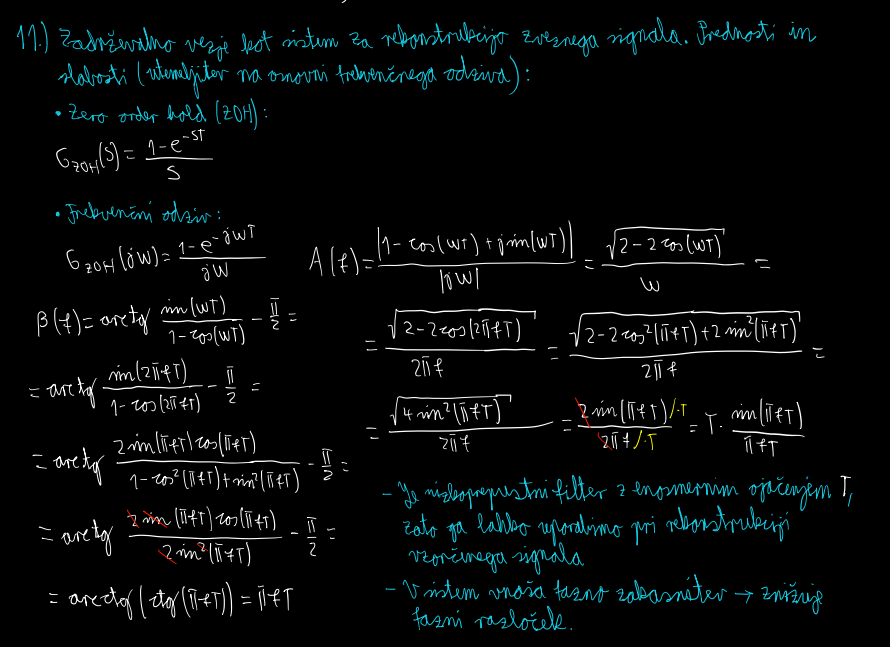 11.) Zadrževalno vezje kot sistem za rekonstrukcijo zveznega signala. Prednosti in
slabosti (utemeljitev na osnovni frekvenčnega odziva):
• Zero order hold (ZOH):
G_ZOH(s) = (1-e^{-sT})/s
• Frekvenčni odziv:
G_ZOH(jw) = (1-e^{-jwT})/(jw)
A(f) = |1-cos(wT)+j sin(wT)|/|jw| = √(2-2cos(wT))/w =
= √(2-2cos(2πfT))/(2πf) = √(2-2cos²(πfT)+2sin²(πfT))/(2πf) =
= √(4sin²(πfT))/(2πf) = (2sin(πfT) /·T)/(2πf /·T) = T · sin(πfT)/(πfT)
β(f) = arctg (sin(wT))/(1-cos(wT)) - π/2 =
= arctg (sin(2πfT))/(1-cos(2πfT)) - π/2 =
= arctg (2sin(πfT)cos(πfT))/(1-cos²(πfT)+sin²(πfT)) - π/2 =
= arctg (2sin(πfT)cos(πfT))/(2sin²(πfT)) - π/2 =
= arcctg(ctg(πfT)) = πfT
- Je nizkoprepustni filter z enosmernim ojačenjem T,
zato ga lahko uporabimo pri rekonstrukciji
vzorčenega signala
- V sistem vnaša fazno zakasnitev → znižuje
fazni razloček.